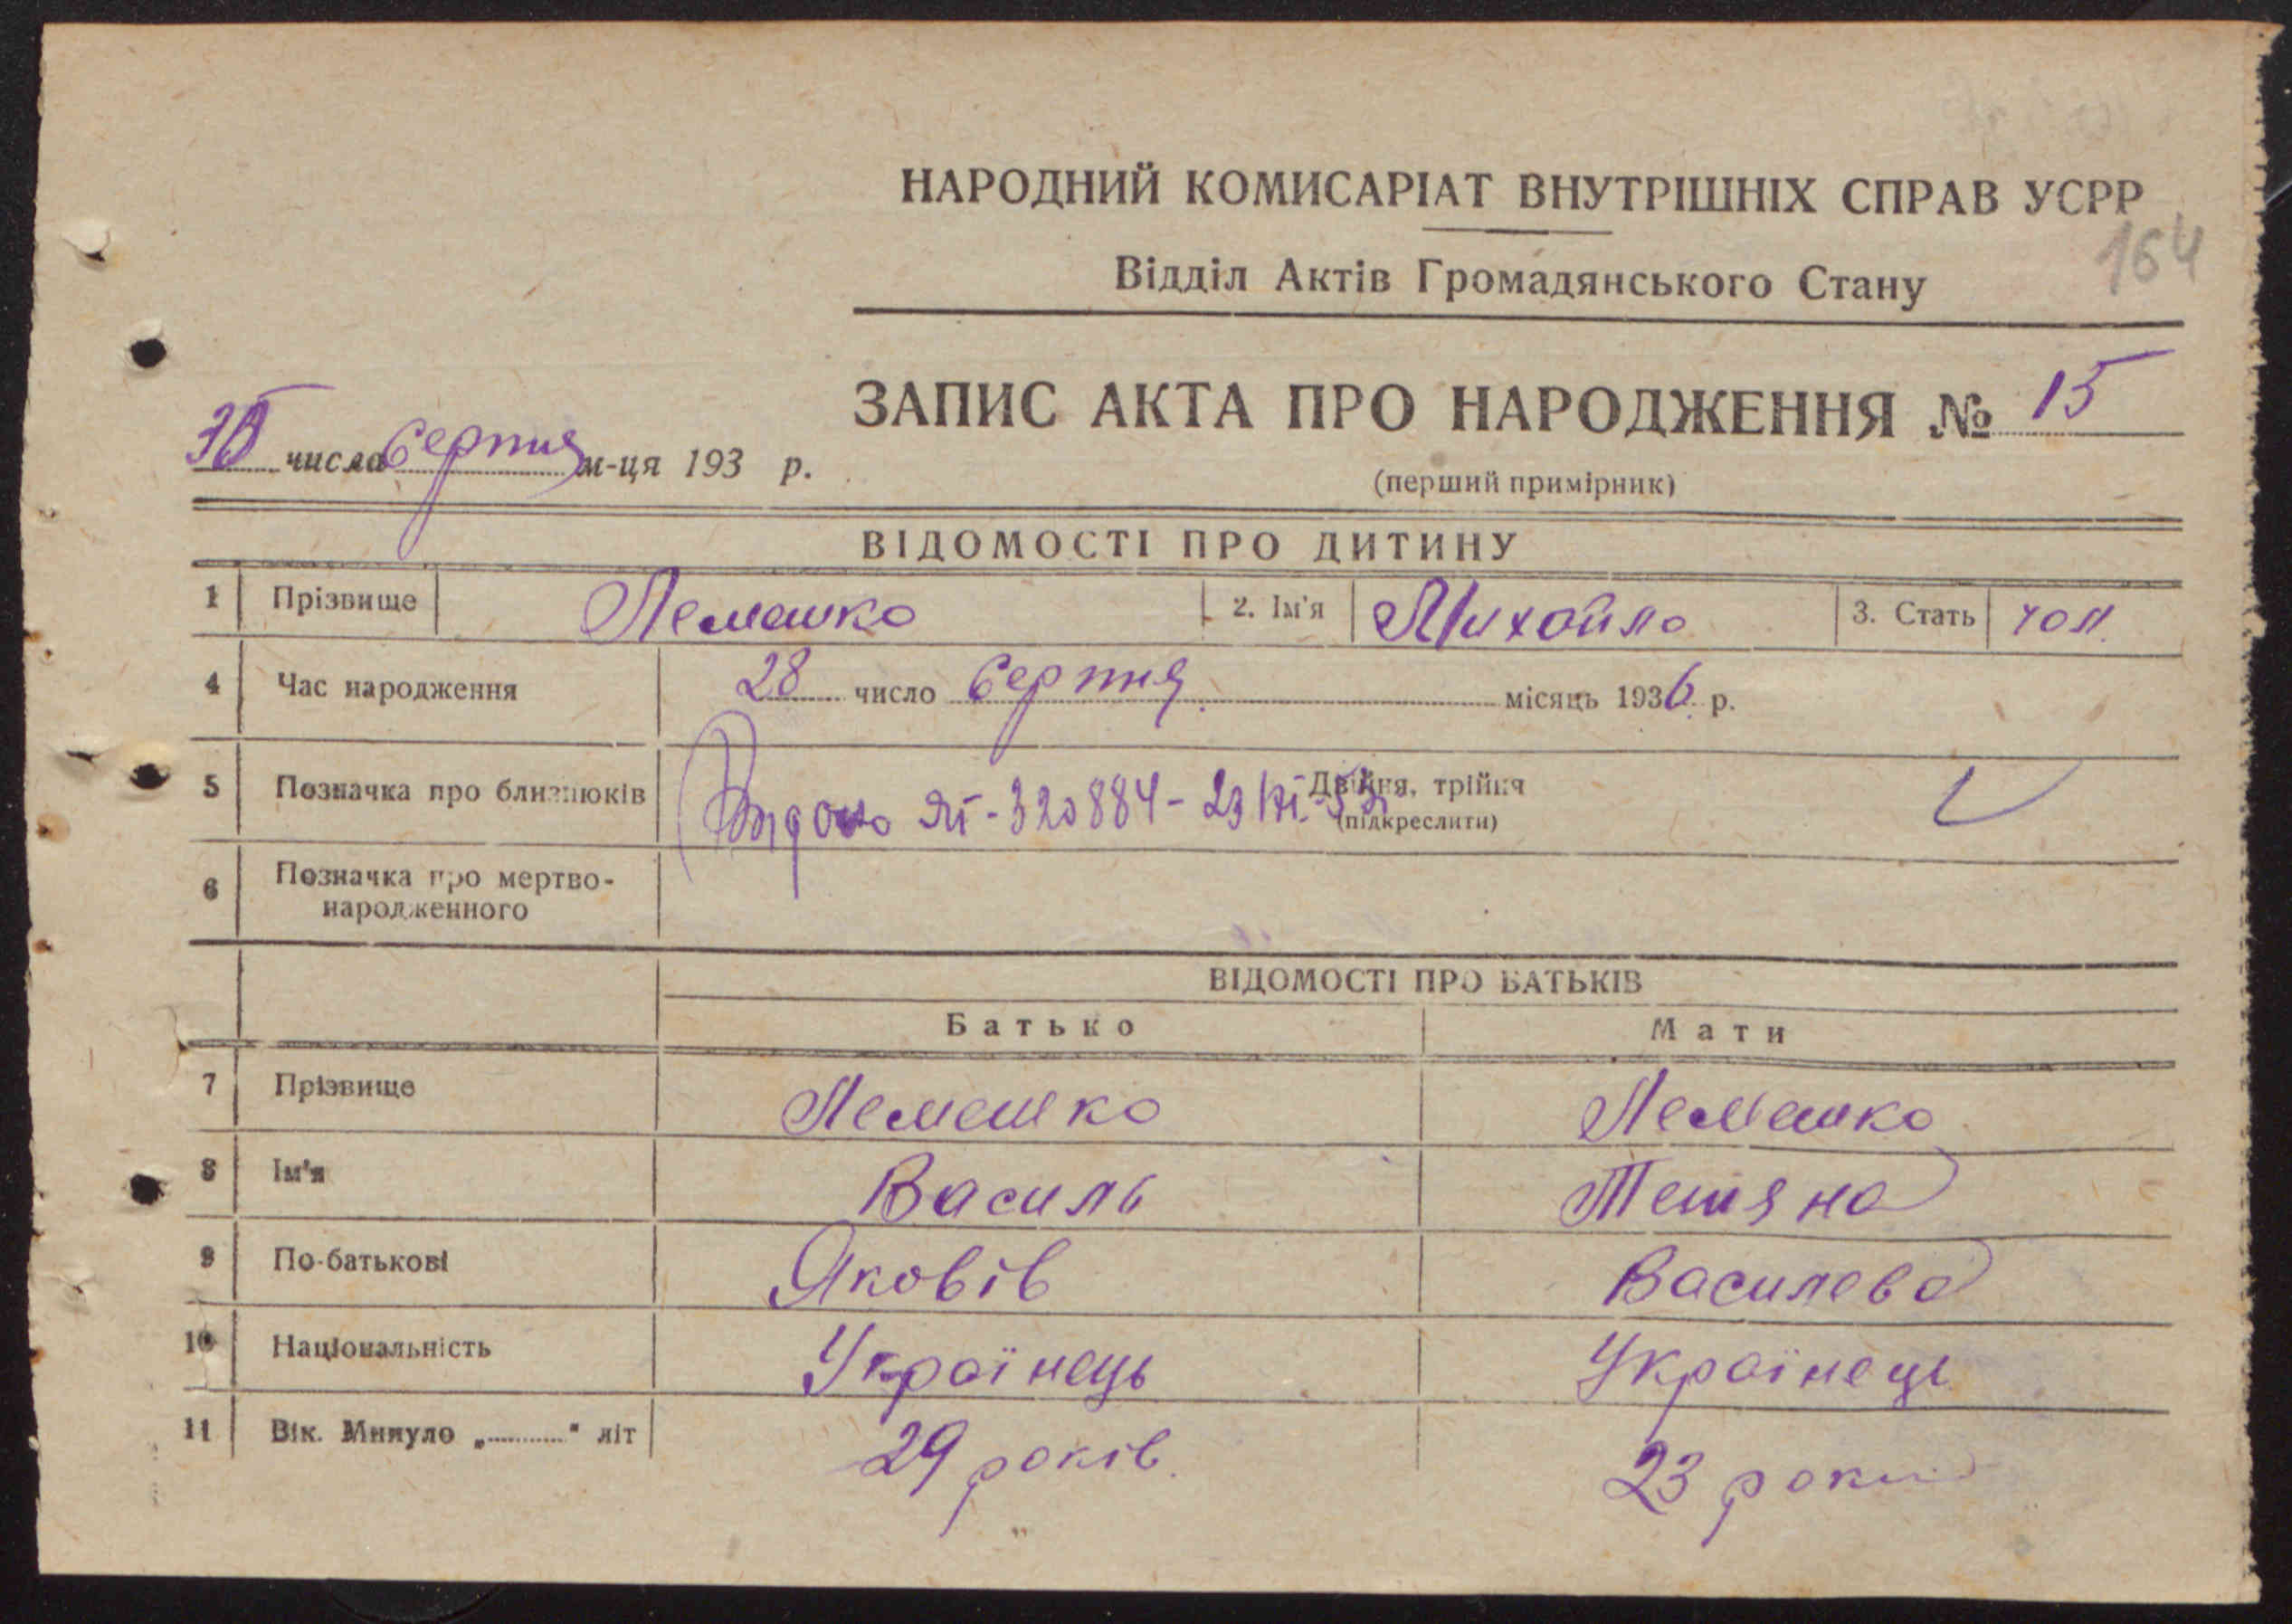 НАРОДНИЙ КОМИСАРІАТ ВНУТРІШНІХ СПРАВ УСРР
164
Відділ Актів Громадянського Стану
ЗАПИС АКТА ПРО НАРОДЖЕННЯ № 15
30 числа Серпня м-ця 193 р.
(перший примірник)
ВІДОМОСТІ ПРО ДИТИНУ
1 Прізвище Лемешко 2. Ім'я Михайло 3. Стать чол.
4 Час народження 28 число Серпня місяць 1936 р.
5 Позначка про близнюків Двійня, трійня
(підкреслити)
Видано ЯГ-320884-23
6 Позначка про мертво-
народженного
ВІДОМОСТІ ПРО БАТЬКІВ
Батько Мати
7 Прізвище Лемешко Лемешко
8 Ім'я Василь Тетяна
9 По-батькові Яковів Василева
10 Національність Українець Українець
11 Вік. Минуло „ " літ 29 років. 23 роки